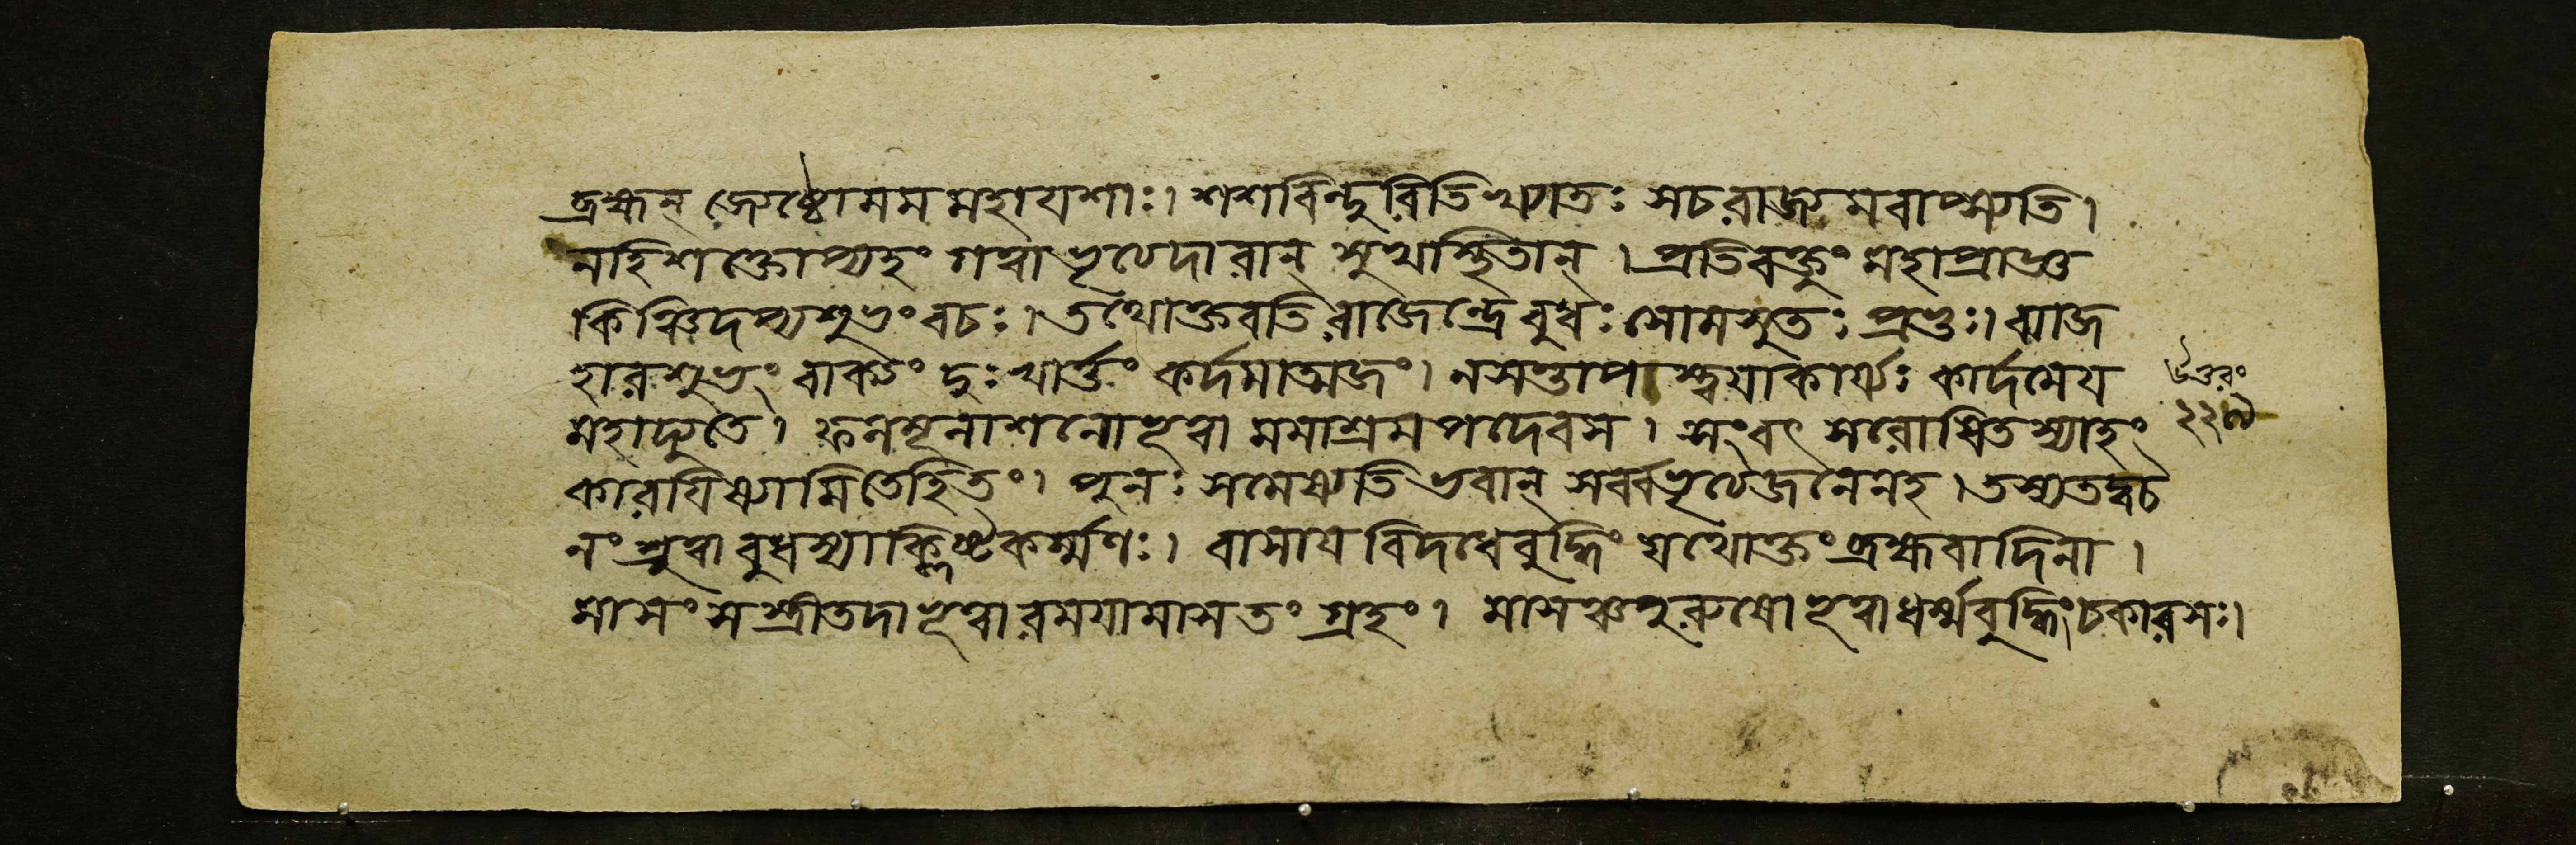 ব্রহ্মন্ জ্যেষ্ঠোমমমহাযশাঃ। শশবিন্দুৰিতিখ্যাতঃ সচৰাজ্যমবাপ্স্যতি।
নহিশক্তোপ্যহং গত্বাভৃত্যদাৰান্ সুখস্থিতান্। প্রতিবক্তুং মহাপ্রাজ্ঞ
কিঞ্চিদপ্যশুভং বচঃ। তথোক্তবতি ৰাজেন্দ্রেবুধঃ সোমসুতঃ প্রভুঃ। ব্যাজ
হাৰশুভং বাক্যং দুঃখার্ত্তং কর্দমাত্মজং। নসন্তাপস্ত্বযাকার্য্যঃ কার্দমেয
মহাদ্যুতে। ফলমূলাশনোভূত্বা মমাশ্রমপদেবস। সংবৎসৰোষিতস্যাহং
কাৰযিষ্যামিতেহিতং। পুনঃ সমেষ্যতিভবান্ সর্ব্বভৃত্যজনেনহ। তস্যতদ্বচ
নং শ্রুত্বাবুধস্যাক্লিষ্টকর্ম্মণঃ। বাসাযবিদধেবুদ্ধিং যথোক্তং ব্রহ্মবাদিনা।
মাসং সস্ত্রীতদাভূত্বাৰমযামাসতং গ্রহং। মাসঞ্চপুৰুষোভূত্বাধর্ম্মবুদ্ধিং চকাৰসঃ।
উত্তৰং
২২৯